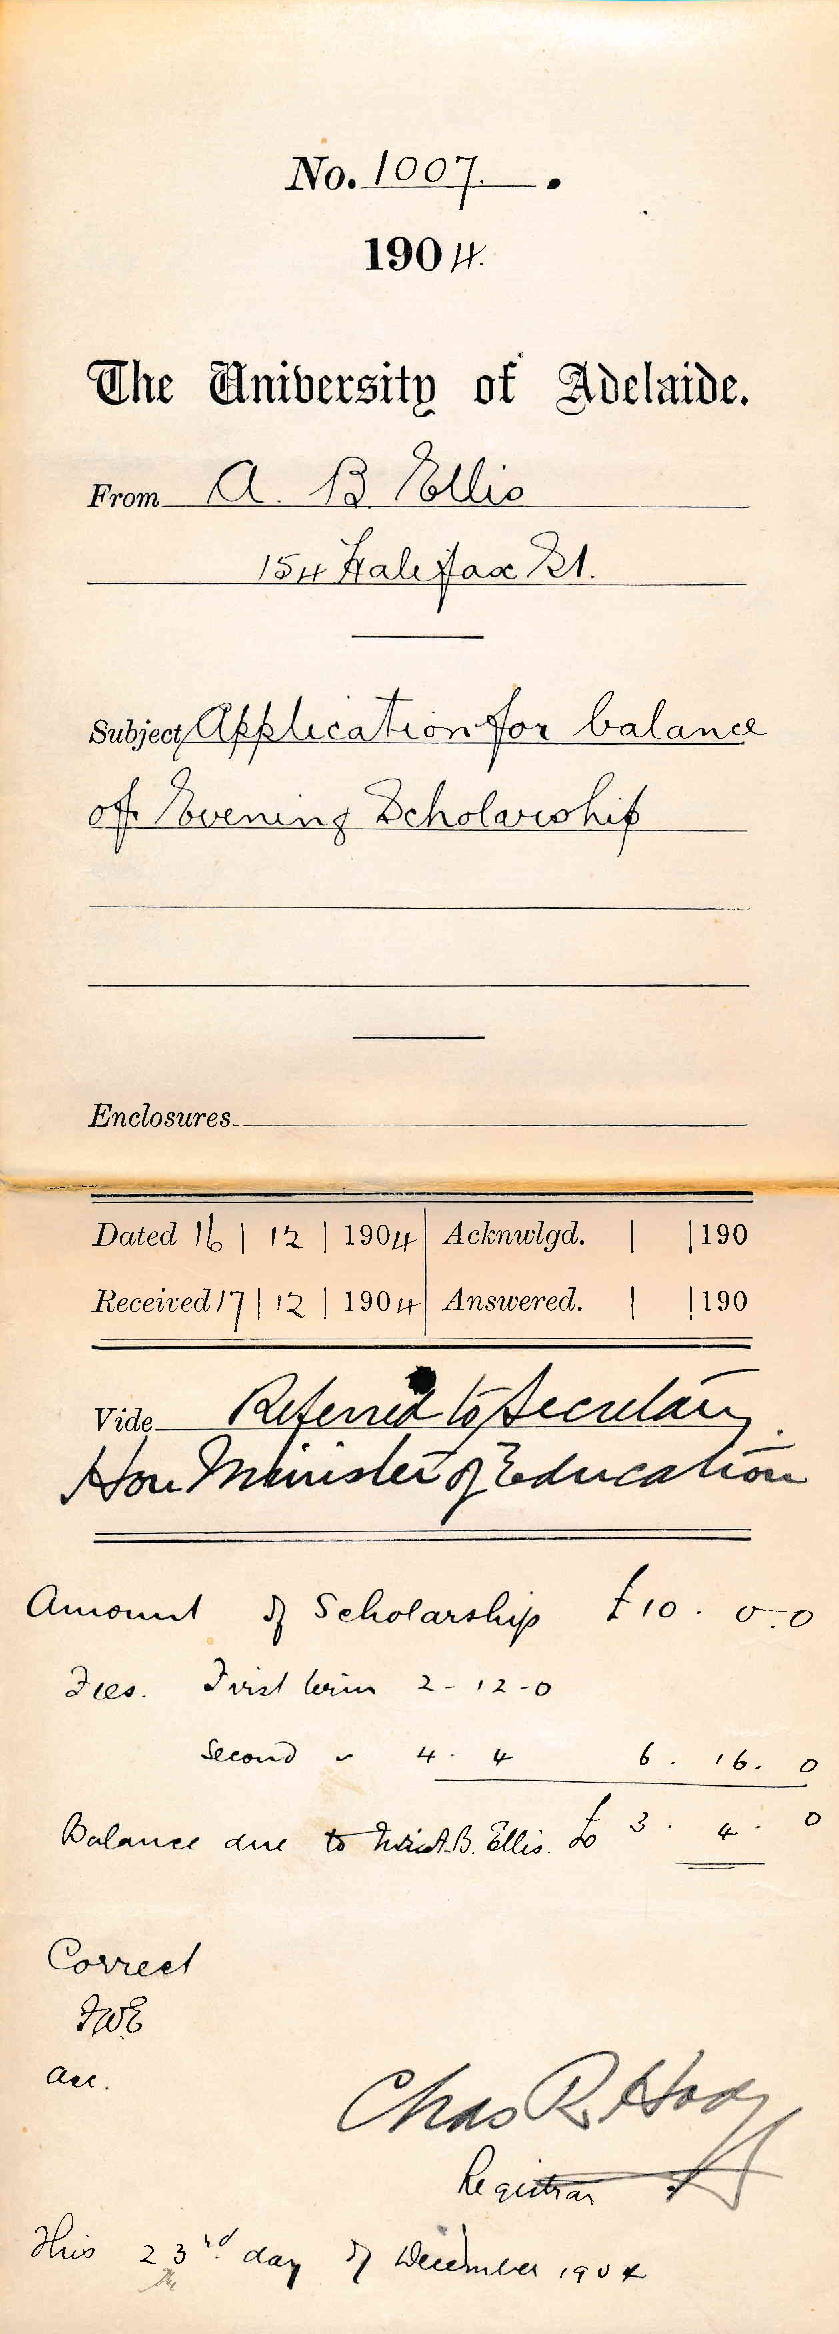 No. 1007.
1904.
The University of Adelaide.
From A. B. Ellis
154 Halifax St.
Subject Application for balance
of Evening Scholarship
Enclosures
Dated 16 | 12 | 1904 Acknwlgd. | | 190
Received 17 | 12 | 1904 Answered. | | 190
Vide Referred to Secretary
Hon Minister of Education
Amount of Scholarship £10. 0-0
Fees. First term 2-12-0
Second " 4. 4 6. 16. 0
Balance due to A.B. Ellis. £ 3. 4. 0
Correct
FWE
acc.
Chas R. Hodge
Registrar
This 23rd day of December 1904